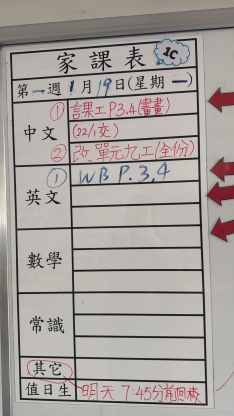 家課表 1C
第一週 1月19日(星期一)
中文 ① 課工P.3,4(畫畫)
(22/1交)
② 改單元九工(全份)
英文 ① WB P.3,4
數學
常識
其它
值日生 明天 7:45分前回校